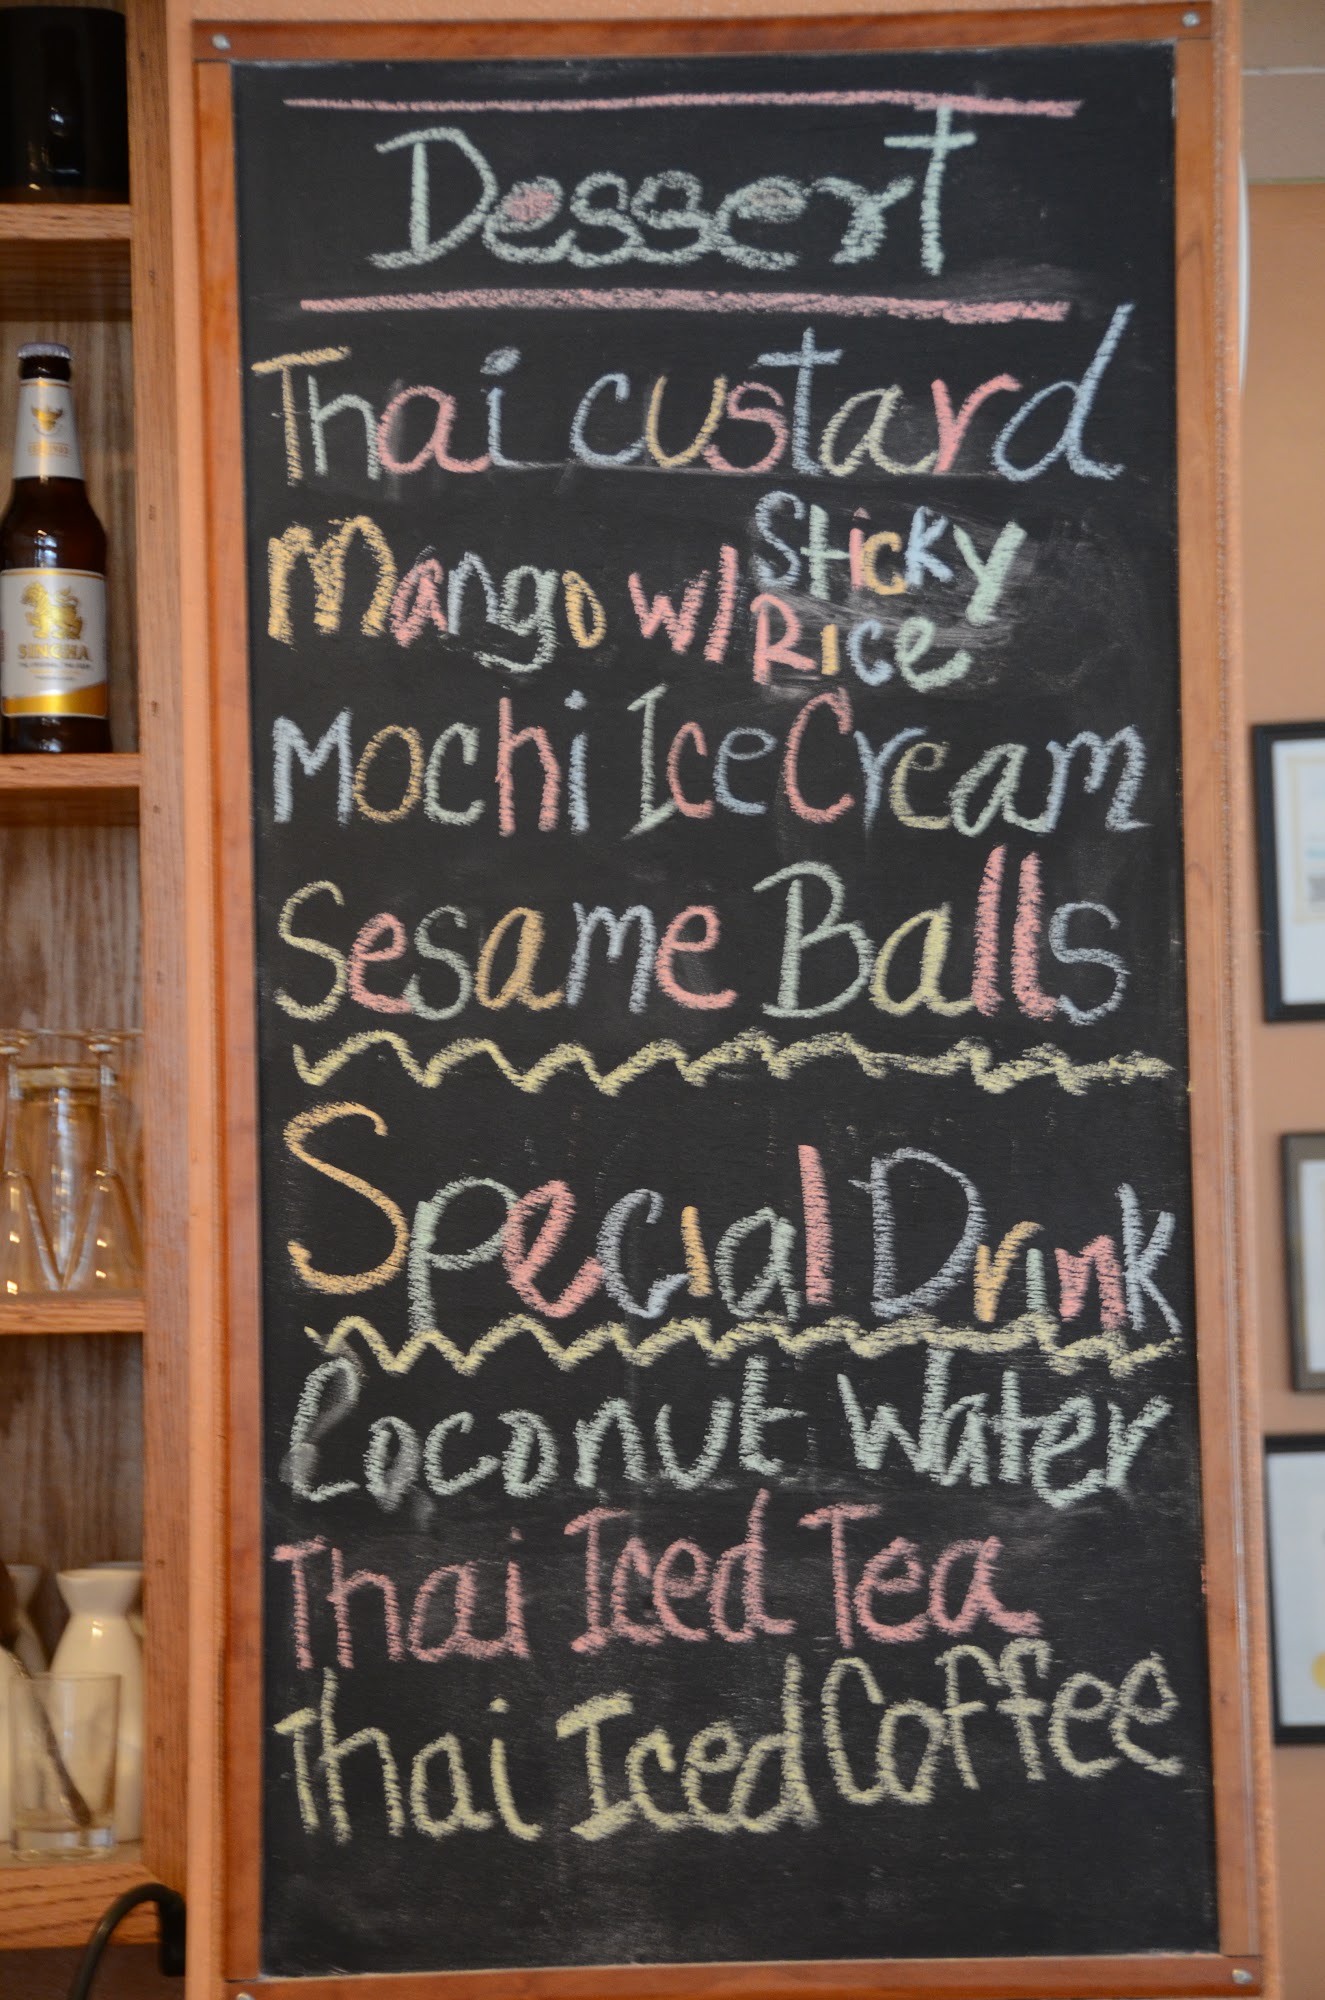 Dessert
Thai custard
Mango w/ Sticky Rice
Mochi Ice Cream
Sesame Balls
Special Drink
Coconut Water
Thai Iced Tea
Thai Iced Coffee
SINGHA